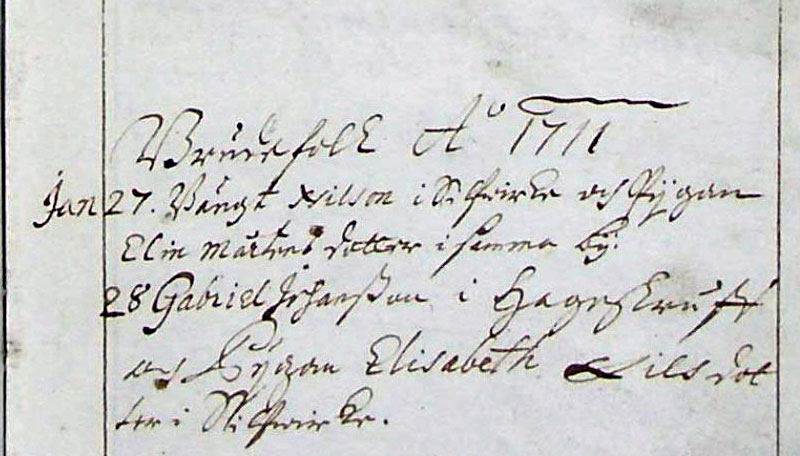 Brudefolk Aº 1711
Jan 27. Bängt Nilson i Silfwirke och Pÿgan
Elin Mårtens dotter i samma bÿ.
28 Gabriel Johanßon i Hageskruff
och Pÿgan Elisabeth Nils dot
ter i Silfwirke.